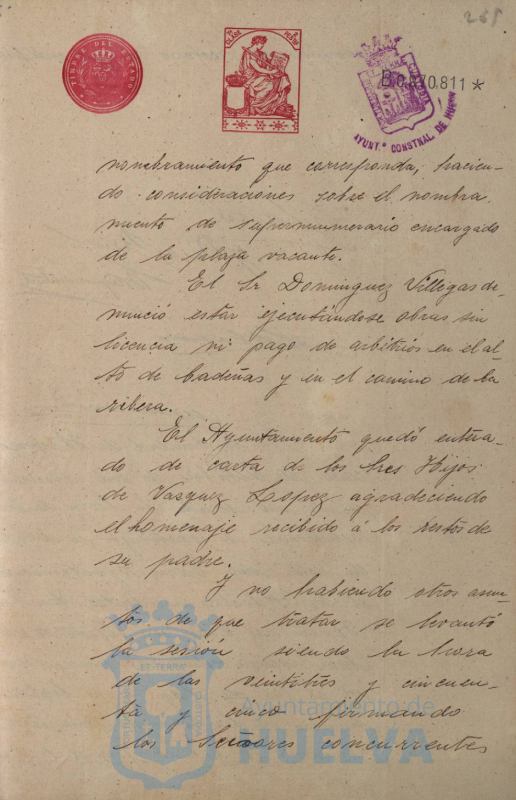 265
TIMBRE DEL ESTADO
B.0.870.811 *
AYUNT.º CONSTNAL. DE HUELVA
nombramiento que corresponda, hacien-
do consideraciones sobre el nombra
miento de supernumerario encargado
de la plaza vacante.
El Sr Dominguez Villegas de-
nunció estar ejecutándose obras sin
licencia ni pago de arbitrios en el al-
to de badeñas y en el camino de la
ribera.
El Ayuntamiento quedó entera-
do de carta de los tres Hijos
de Vasquez Lopez agradeciendo
el homenaje recibido á los restos de
su padre.
Y no habiendo otros asun-
tos de que tratar se levantó
la sesión siendo la hora
de las veintitres y cincuen-
ta y cinco firmando
los Señores concurrentes
Ayuntamiento de
HUELVA